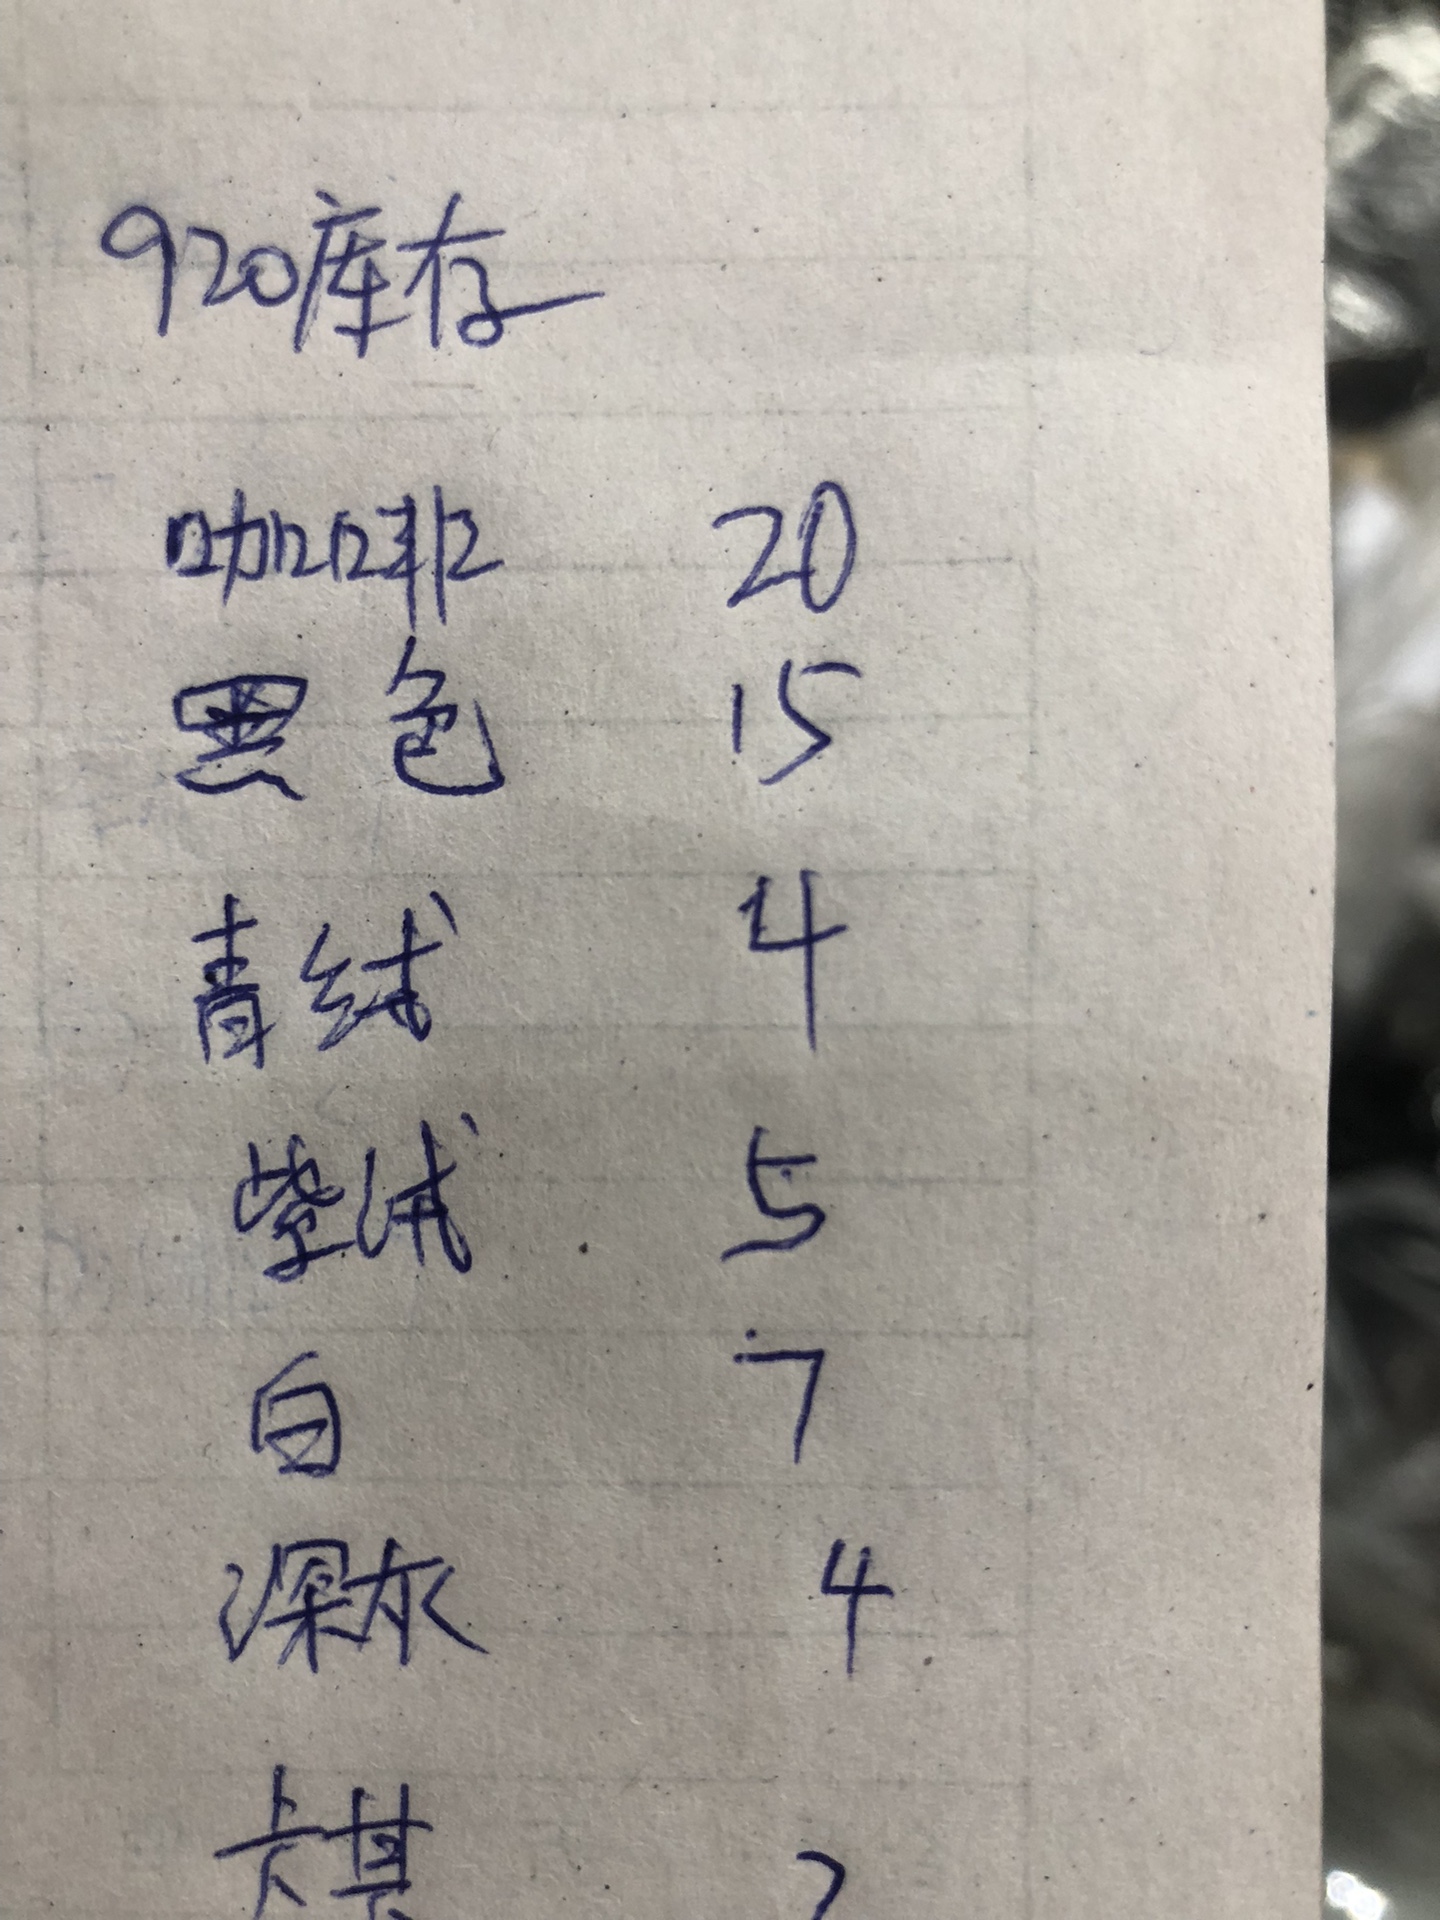 920库存
咖啡 20
黑色 15
青绒 4
紫绒 5
白 7
深灰 4
卡其